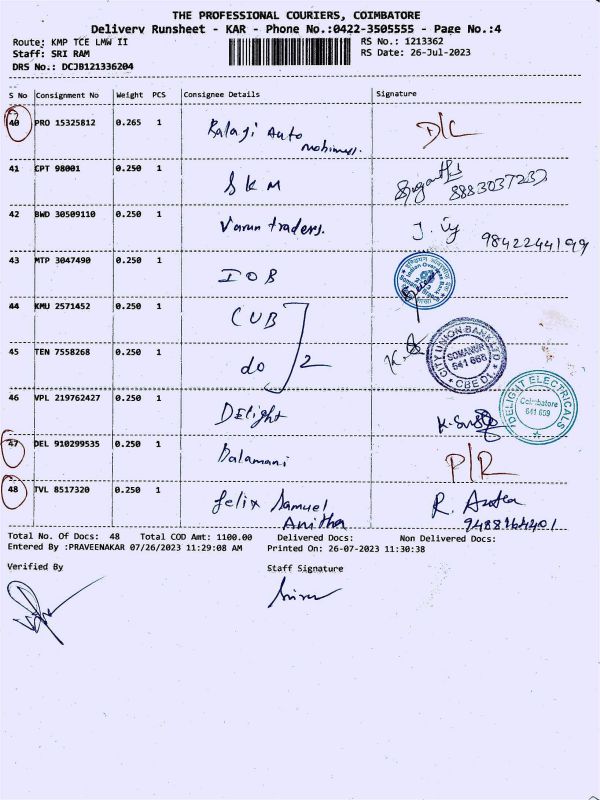 THE PROFESSIONAL COURIERS, COIMBATORE
Delivery Runsheet - KAR - Phone No.:0422-3505555 - Page No.:4
Route: KMP TCE LMW II RS No.: 1213362
Staff: SRI RAM RS Date: 26-Jul-2023
DRS No.: DCJB121336204
S No Consignment No Weight PCS Consignee Details Signature
40 PRO 15325812 0.265 1 Auto D/C
41 CPT 98001 0.250 1 SKM
42 BWD 30509110 0.250 1 Varun traders. 9842244199
43 MTP 3047490 0.250 1 IOB
44 KMU 2571452 0.250 1 CUB
CITY UNION BANK LTD
SOMANUR
641 668
CBE DT.
45 TEN 7558268 0.250 1 do 2
46 VPL 219762427 0.250 1 Delight
DELIGHT ELECTRICALS
Coimbatore
641 659
47 DEL 910299535 0.250 1 Balamani P/R
48 TVL 8517320 0.250 1 Felix Samuel
Anitha
Total No. Of Docs: 48 Total COD Amt: 1100.00 Delivered Docs: Non Delivered Docs:
Entered By :PRAVEENAKAR 07/26/2023 11:29:08 AM Printed On: 26-07-2023 11:30:38
Verified By Staff Signature